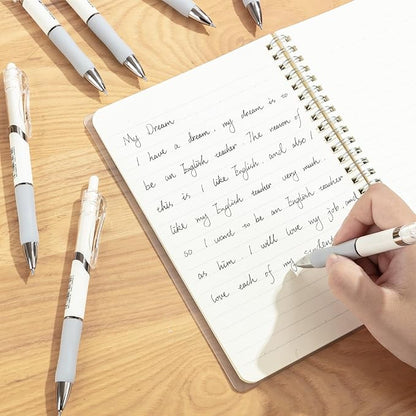 My Dream
I have a dream, my dream is to
be an English teacher. The reason of
this is I like English, and also
like my English teacher very much.
so I want to be an English teacher
as him. I will love my job, and
love each of my students